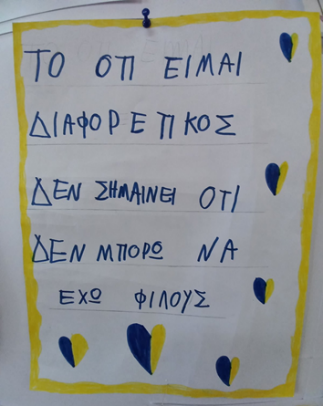 ΤΟ ΟΤΙ ΕΙΜΑΙ
ΔΙΑΦΟΡΕΤΙΚΟΣ
ΔΕΝ ΣΗΜΑΙΝΕΙ ΟΤΙ
ΔΕΝ ΜΠΟΡΩ ΝΑ
ΕΧΩ ΦΙΛΟΥΣ